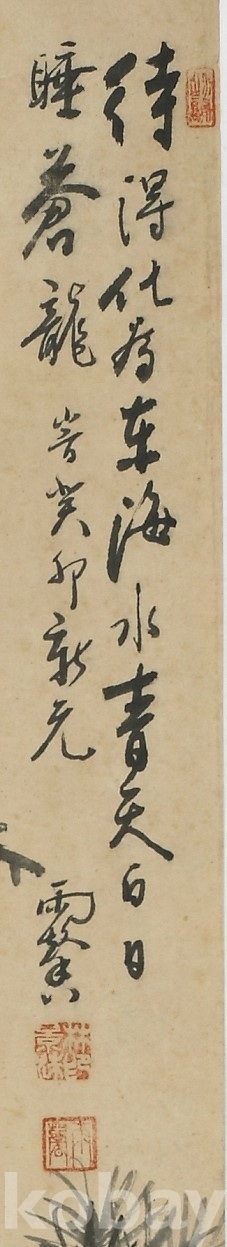 待得化為東海水青天白日
睡蒼龍 癸卯新元
kobay